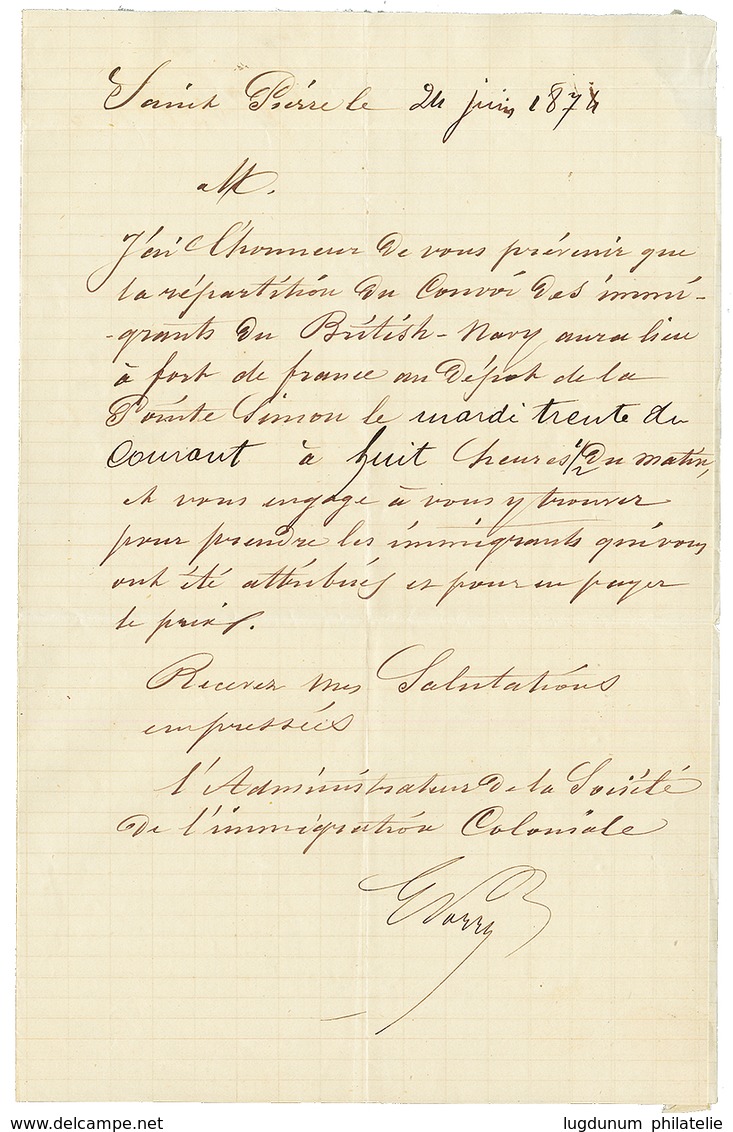 Saint Pierre le 24 juin 1874
M.
J'ai l'honneur de vous prévenir que
la répartition du Convoi des immi-
-grants du British-Navy aura lieu
à fort de france au Dépot de la
Pointe Simon le mardi trente du
Courant à huit heures 1/2 du matin,
et vous engage à vous y trouver
pour prendre les immigrants qui vous
ont été attribués et pour en payer
le prix.
Recevez mes Salutations
empressées
l'Administrateur de la Société
de l'immigration Coloniale
www.delcampe.net
lugdunum philatelie